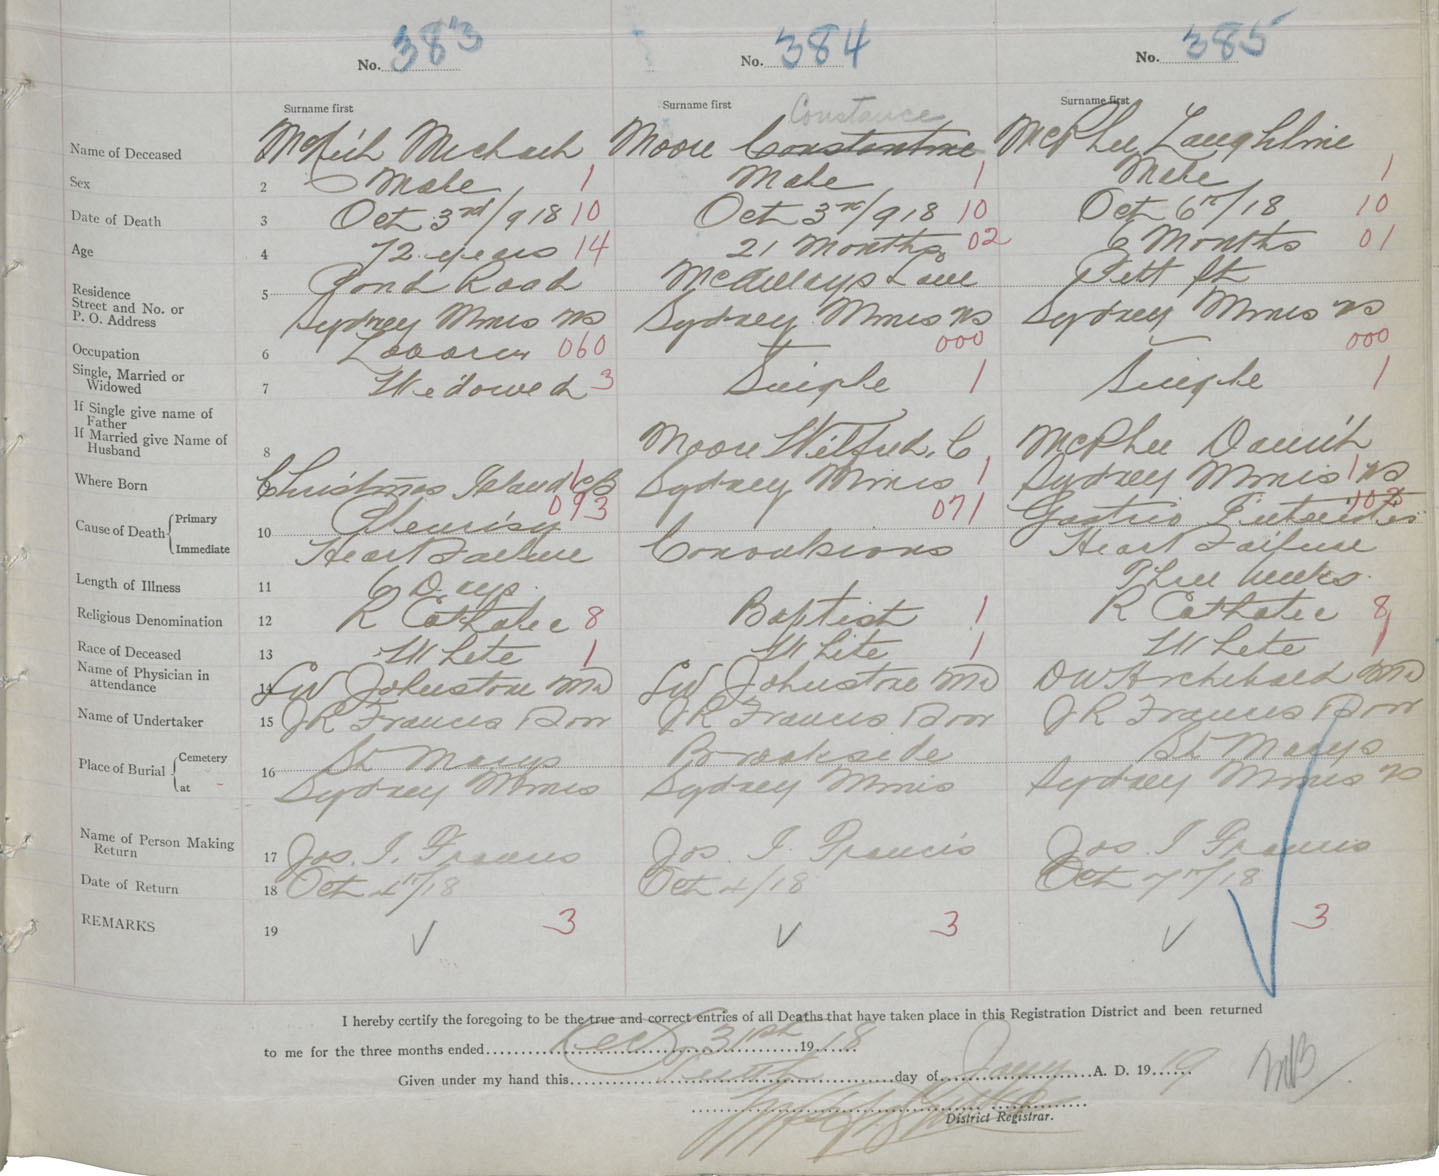 No. 383 No. 384 No. 385
Surname first Surname first Constance Surname first
Name of Deceased Michael Moore Constantine McPhee Laughline
Sex 2 Male 1 Male 1 Male 1
Date of Death 3 Oct 3rd/918 10 Oct 3rd/918 10 Oct 6th/18 10
Age 4 72 years 14 21 Months 02 6 Months 01
Residence Street and No. or P. O. Address 5 Pond Road Lane Pitt St
Sydney Mines NS Sydney Mines NS Sydney Mines NS
Occupation 6 Laborer 060 000 000
Single, Married or Widowed 7 Widowed 3 Single 1 Single 1
If Single give name of Father
If Married give Name of Husband 8 Moore Wilfred. C. McPhee
Where Born Christmas Island CB 1 Sydney Mines 1 Sydney Mines 1 NS
Cause of Death Primary 10 Pleurisy 093 071 Gastric
Immediate Heart Failure Convulsions Heart Failure
Length of Illness 11 6 Days. Three weeks.
Religious Denomination 12 R Catholic 8 Baptist 1 R Catholic 8
Race of Deceased 13 White 1 White 1 White 1
Name of Physician in attendance 14 LW Johnstone MD LW Johnstone MD DW Archibald MD
Name of Undertaker 15 JR Francis Son JR Francis Son JR Francis Son
Place of Burial Cemetery 16 St Marys Brookside St Marys
at Sydney Mines Sydney Mines Sydney Mines NS
Name of Person Making Return 17 Jos. I. Francis Jos. I. Francis Jos. I Francis
Date of Return 18 Oct 4th/18 Oct 4/18 Oct 7th/18
REMARKS 19 3 3 3
I hereby certify the foregoing to be the true and correct entries of all Deaths that have taken place in this Registration District and been returned
to me for the three months ended Dec 31st 1918
Given under my hand this day of Jany A. D. 19 19
District Registrar.